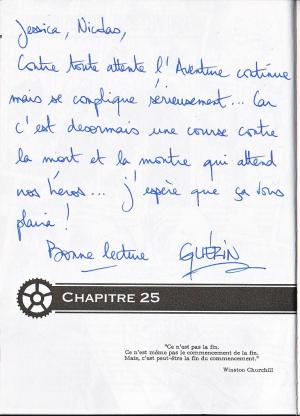 Jessica, Nicolas,
Contre toute attente l'Aventure continue
mais se complique sérieusement... Car
c'est desormais une course contre
la mort et la montre qui attend
nos héros... j'espère que ça vous
plaira !
Bonne lecture GUÉRIN
CHAPITRE 25
"Ce n'est pas la fin.
Ce n'est même pas le commencement de la fin.
Mais, c'est peut-être la fin du commencement."
Winston Churchill